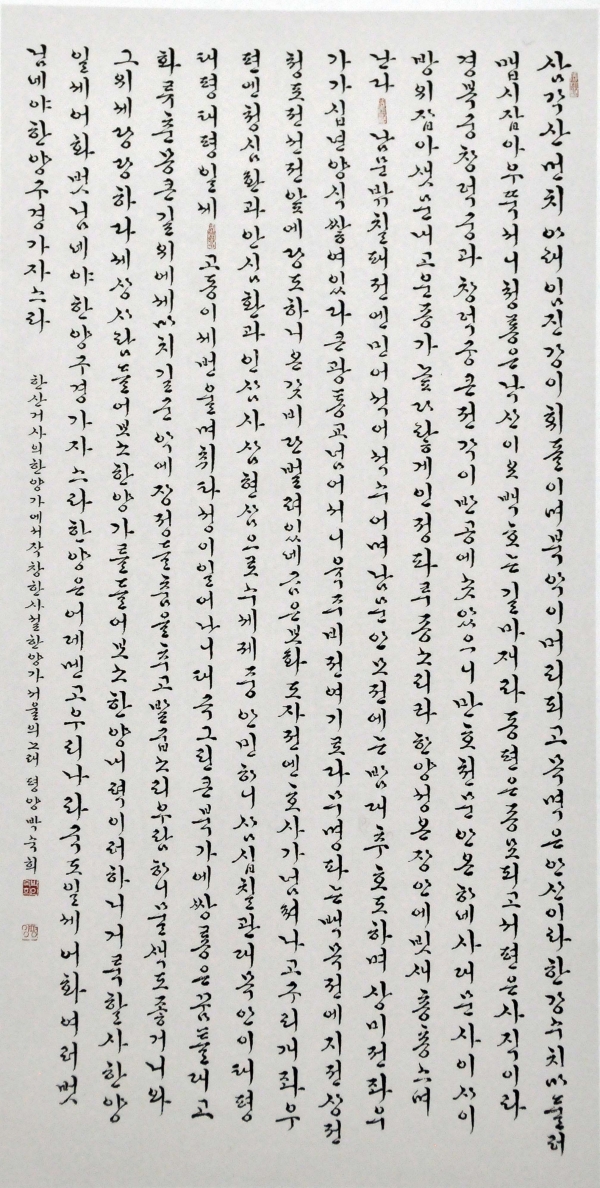 삼각산 먼치 아래 임진강이 휘돌이며 북악이 머리 되고 목멱은 안산이라 한강수 치마 둘러
맵시 잡아 우뚝 서니 청룡은 낙산이오 백호는 길마재라 동편은 종묘 되고 서편은 사직이라
경복궁 창덕궁과 창덕궁 큰 전각이 반공에 솟았으니 만호천문 안온하네 사대문 사이사이
방위 잡아 샛문 내고 운종가 높다랗게 인정파루 종소리라 한양성 온 장안에 빗새 흥흥
난다 남문 밖 칠패전엔 민어 석어 석수어며 남문 안 모전에는 밤 대추 호도하며 상미전 좌우
가가 십년 양식 쌓여있다 큰 광통교 넘어서니 육주비전 여기로다 무명 파는 백목전에 지전 상전
청포전 선전 앞에 랑도하니 온갖 비단 벌려있네 금은보화 도자전엔 호사가 넘쳐나고 구리개 좌우
편엔 청심환과 안심환과 인삼 사삼 현삼으로 수세제중 안민하니 삼십칠관 대목안이 태평
태평 태평일세 고동이 세번 울며 취타성이 일어나니 태국 그린 큰 북가에 쌍룡은 꿈틀대고
화루춘몽 큰길 위에 세마치 길군악에 장정들 춤을 추고 발굽소리 우람하니 물색도 좋거니와
그 위세 랑랑하다 세상사람들어보소 한양가를 들어보소 한양내력이러하니 거룩할사 한양
일세 어화 벗님네야 한양구경 가자스라 한양은 어레멘고 우리나라 국도일세 어화 여러 벗
님네야 한양구경 가자스라
한산거사의 한양가에서 작창한 사설 한양가 서울의 노래 평양 박숙희